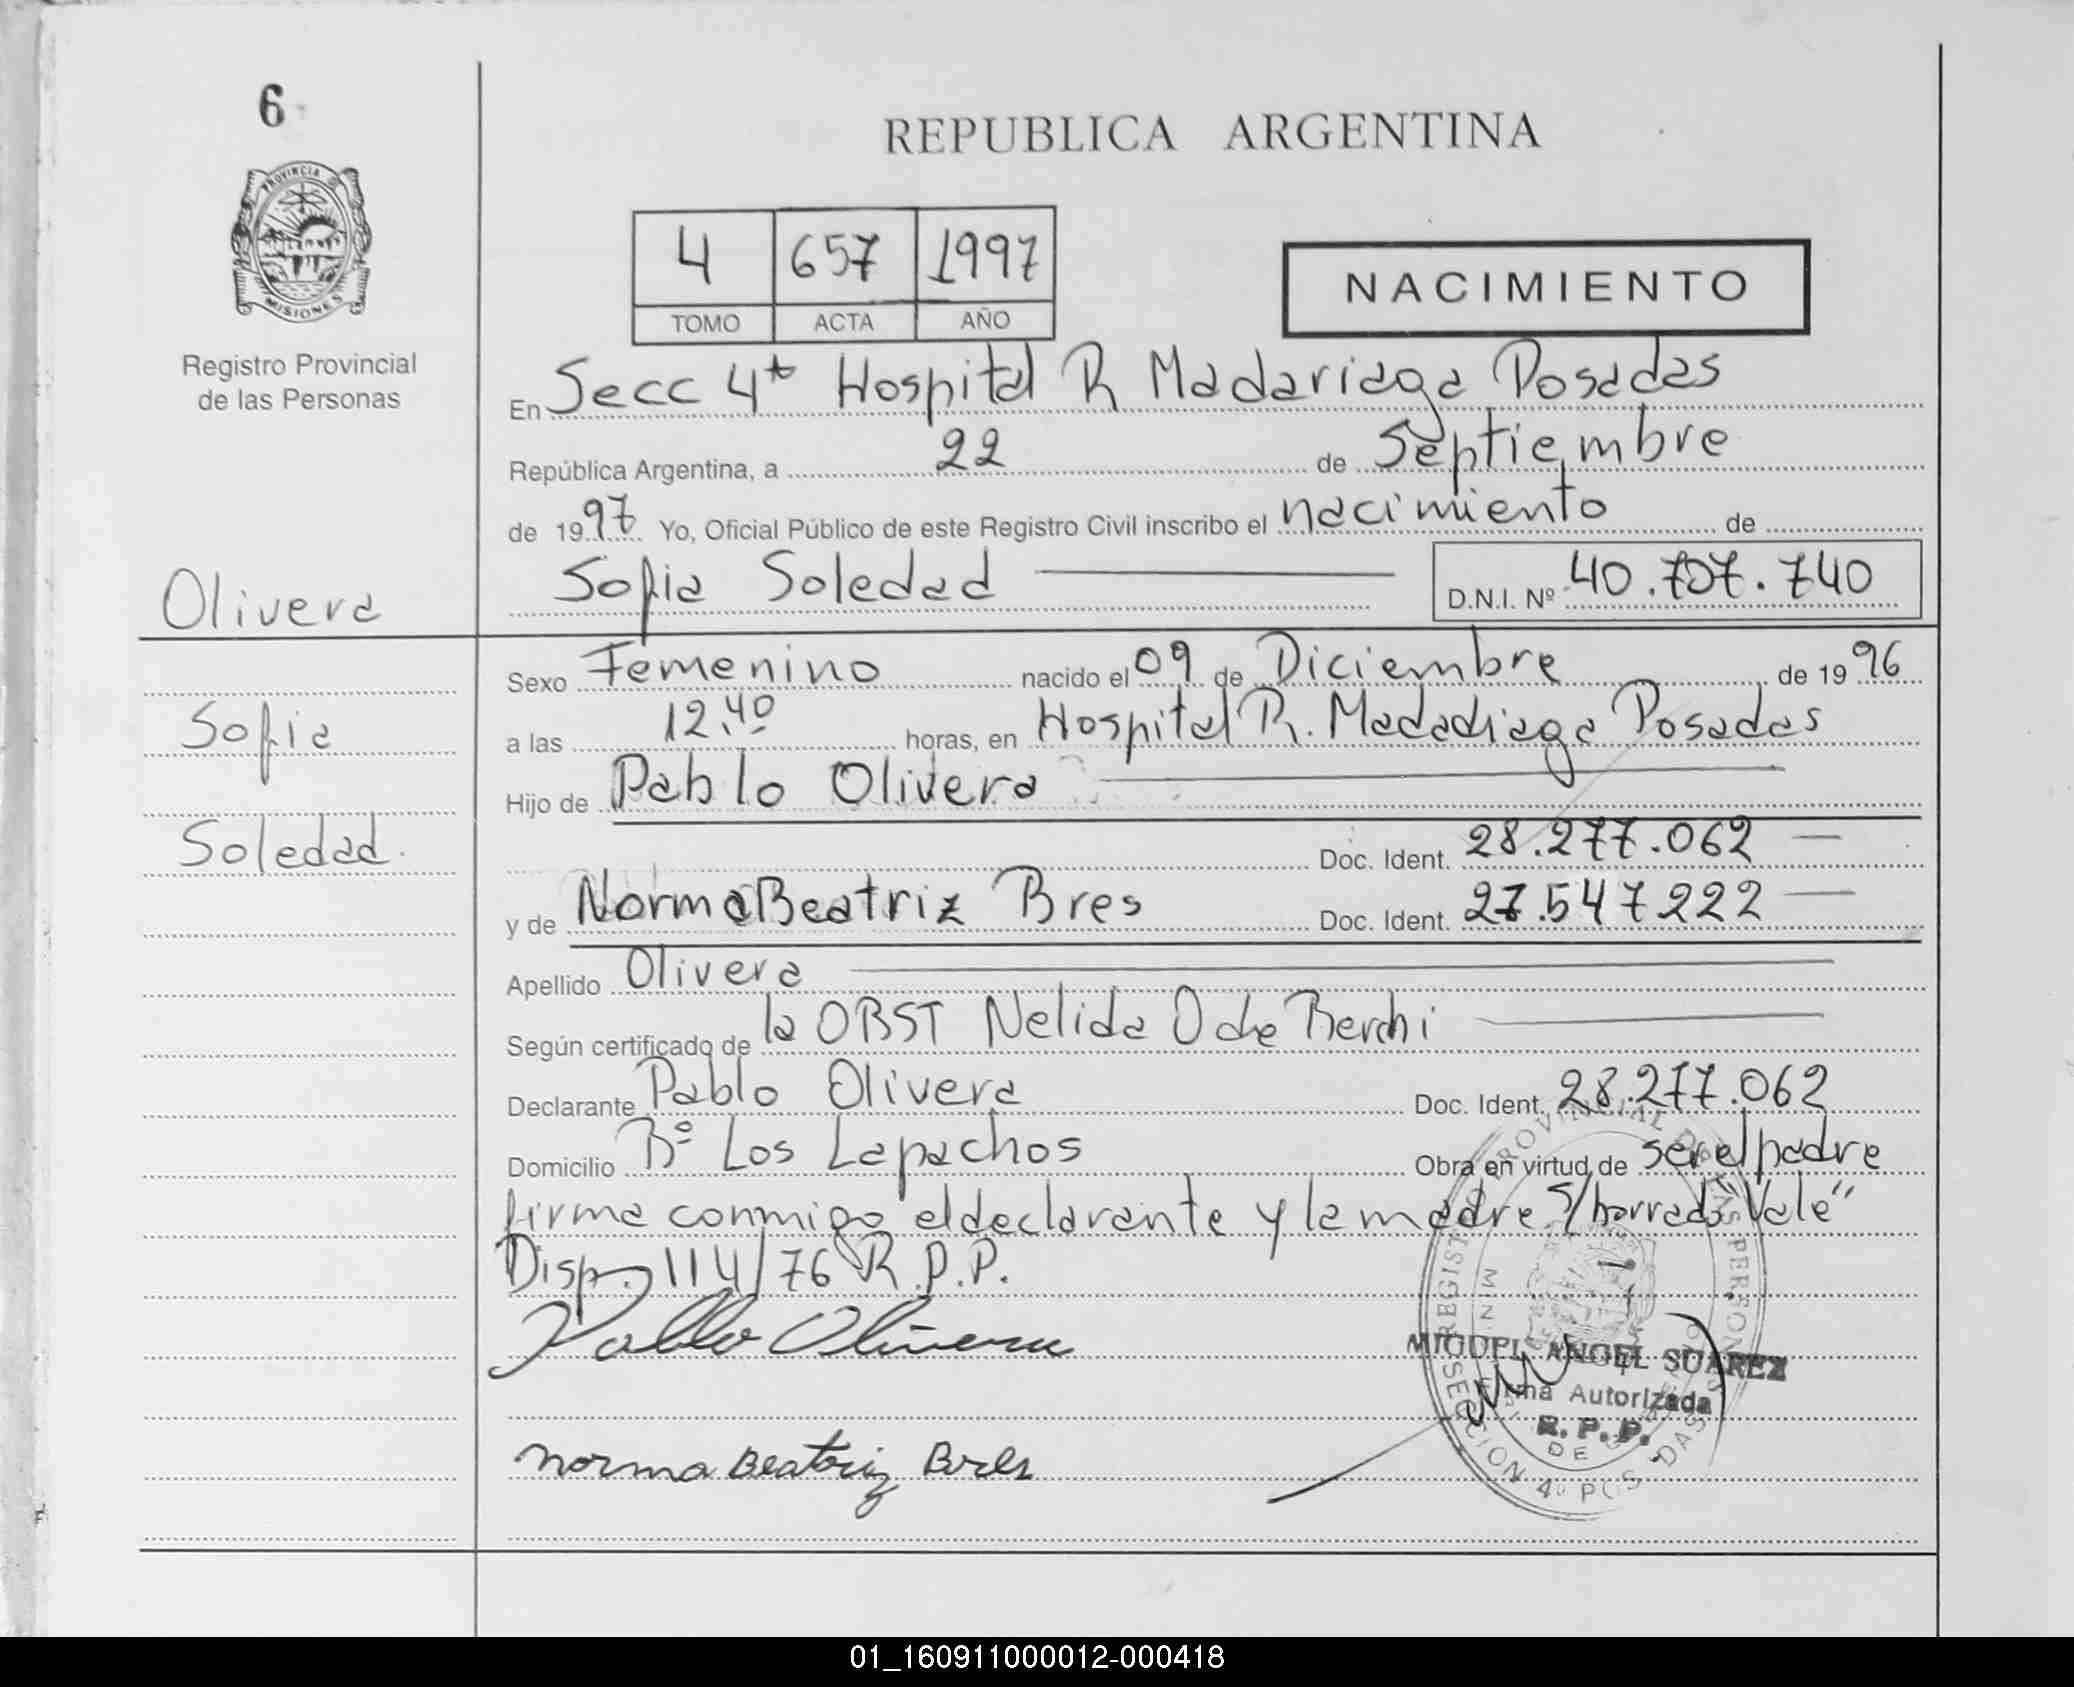 6
REPUBLICA ARGENTINA
PROVINCIA DE
MISIONES
Registro Provincial
de las Personas
4 657 1997
TOMO ACTA AÑO
NACIMIENTO
En Secc 4ta Hospital R Madariaga Posadas
República Argentina, a 22 de Septiembre
de 1997 Yo, Oficial Público de este Registro Civil inscribo el nacimiento de
Olivera
Sofia Soledad D.N.I. Nº 40.707.740
Sexo Femenino nacido el 09 de Diciembre de 1996
Sofia
a las 12.40 horas, en Hospital R. Madadiaga Posadas
Hijo de Pablo Olivera
Soledad.
Doc. Ident. 28.277.062
y de Norma Beatriz Bres Doc. Ident. 27.547.222
Apellido Olivera
Según certificado de la OBST Nelida O de Berchi
Declarante Pablo Olivera Doc. Ident. 28.277.062
Domicilio Bº Los Lapachos Obra en virtud de ser el padre
firma conmigo el declarante y la madre S/borrado Vale"
Disp. 114/76 R.P.P.
Pablo Olivera
MIGUEL ANGEL SUAREZ
Firma Autorizada
R. P. P.
Norma Beatriz Bres
REGISTRO PROVINCIAL DE LAS PERSONAS
SECCION 4º POSADAS
01_160911000012-000418